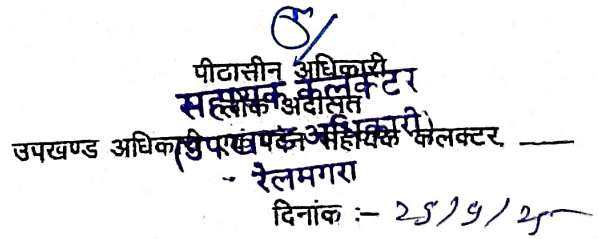 पीठासीन अधिकारी
सहायक कलक्टर
लोक अदालत
(उपखण्ड अधिकारी)
उपखण्ड अधिकारी एवं पदेन सहायक कलक्टर
रेलमगरा
दिनांक :- 25/9/25